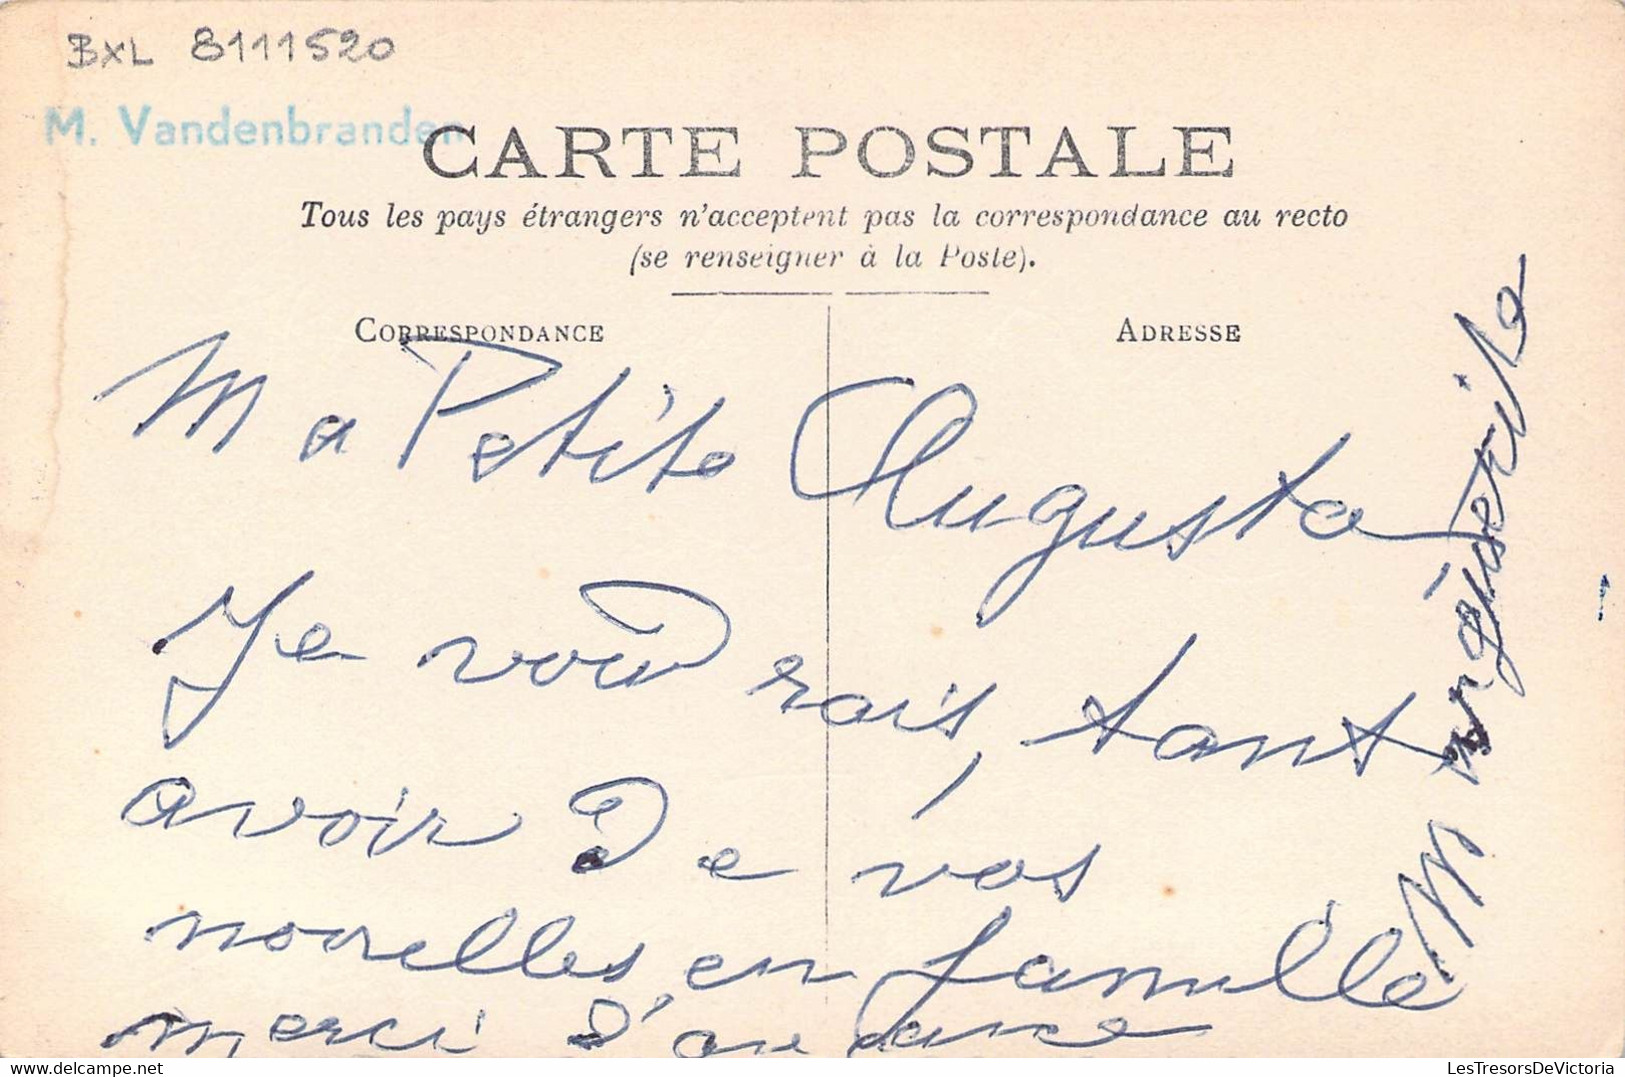 BXL 8111520
M. Vandenbranden
CARTE POSTALE
Tous les pays étrangers n'acceptent pas la correspondance au recto
(se renseigner à la Poste).
CORRESPONDANCE
ADRESSE
Ma Petite Augusta
Je voudrais, tant
avoir de vos
nouvelles en famille
merci d'avance
Marguerite
LesTresorsDeVictoria